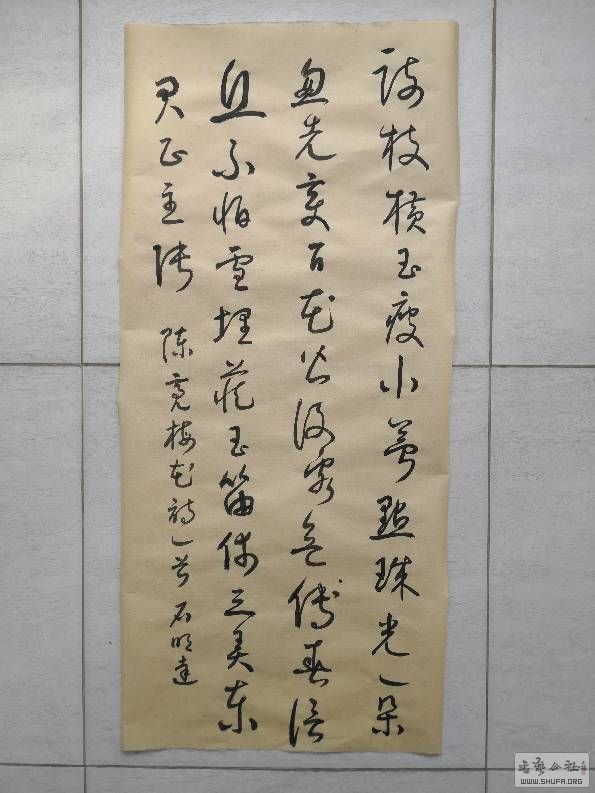 疏枝橫玉瘦小萼點珠光一朵
忽先變百花皆後香欲傳春信
息不怕雪埋藏玉笛休三弄東
君正主張
陳亮梅花詩一首 石明達
书艺公社
WWW.SHUFA.ORG